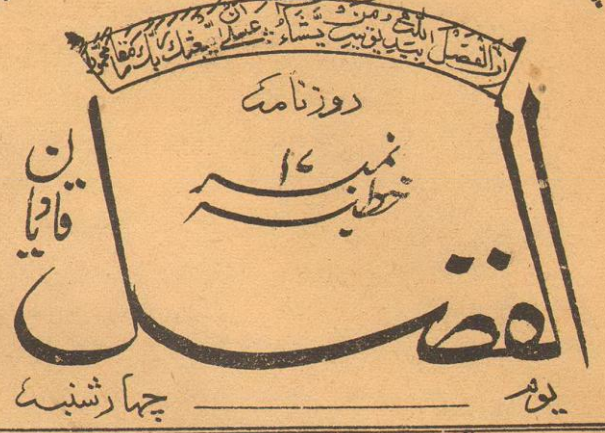 ان الفضل بید اللہ یؤتیہ من یشاء عسٰی ان یبعثک ربک مقاما محمودا
روزنامہ
خطبہ نمبر ۱۷
الفضل
قادیان
یوم چہارشنبہ